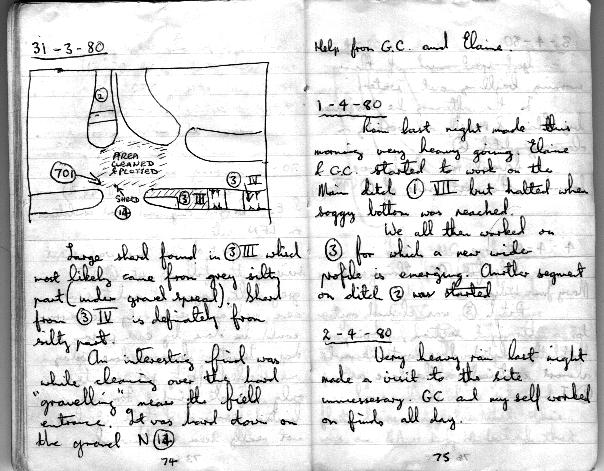 31-3-80
②
AREA
CLEANED
& PLOTTED
701
SHERD
⑭
③ III
③ IV
Large sherd found in ③ III which
most likely came from grey silty
part (under gravel spread). Sherd
from ③ IV is definately from
silty part.
An interesting find was
while cleaning over the hard
"gravelling" near the field
entrance. It was hard down on
the gravel N ⑭
74
Help from G.C. and Elaine.
1-4-80
Rain last night made this
morning very heavy going. Elaine
& G.C. started to work on the
Main ditch ① VII but halted when
soggy bottom was reached.
We all then worked on
③ for which a new wider
profile is emerging. Another segment
on ditch ② was started
2-4-80
Very heavy rain last night
made a visit to the site
unnessesary. GC and my self worked
on finds all day.
75